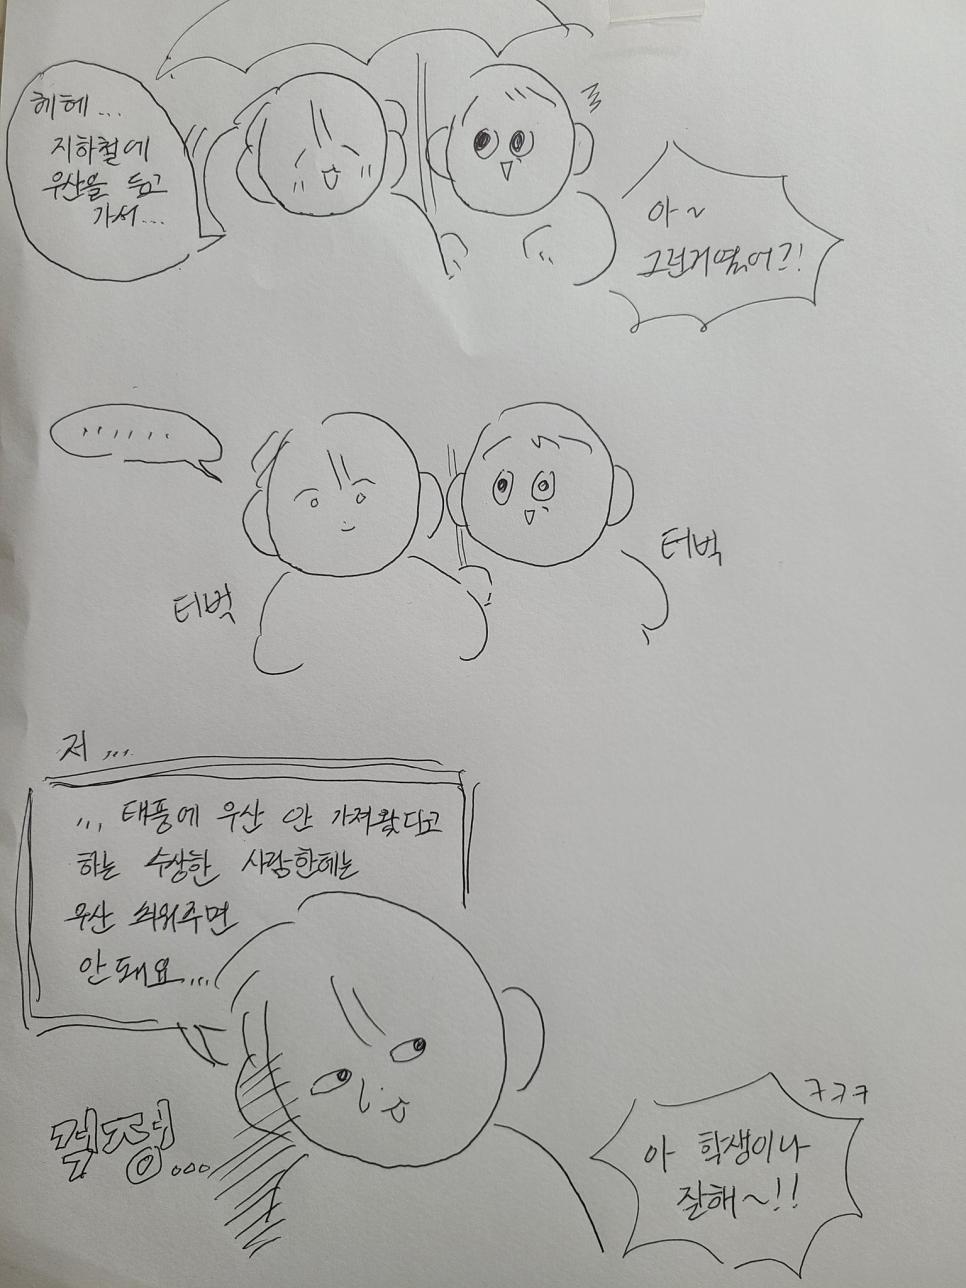 헤헤...
지하철에
우산을 두고
가서...
아~
그런거였어?!
......
터벅
터벅
저...
... 태풍에 우산 안 가져왔다고
하는 수상한 사람한테는
우산 씌워주면
안돼요...
걱정...
ㅋㅋㅋ
아 학생이나
잘해~!!